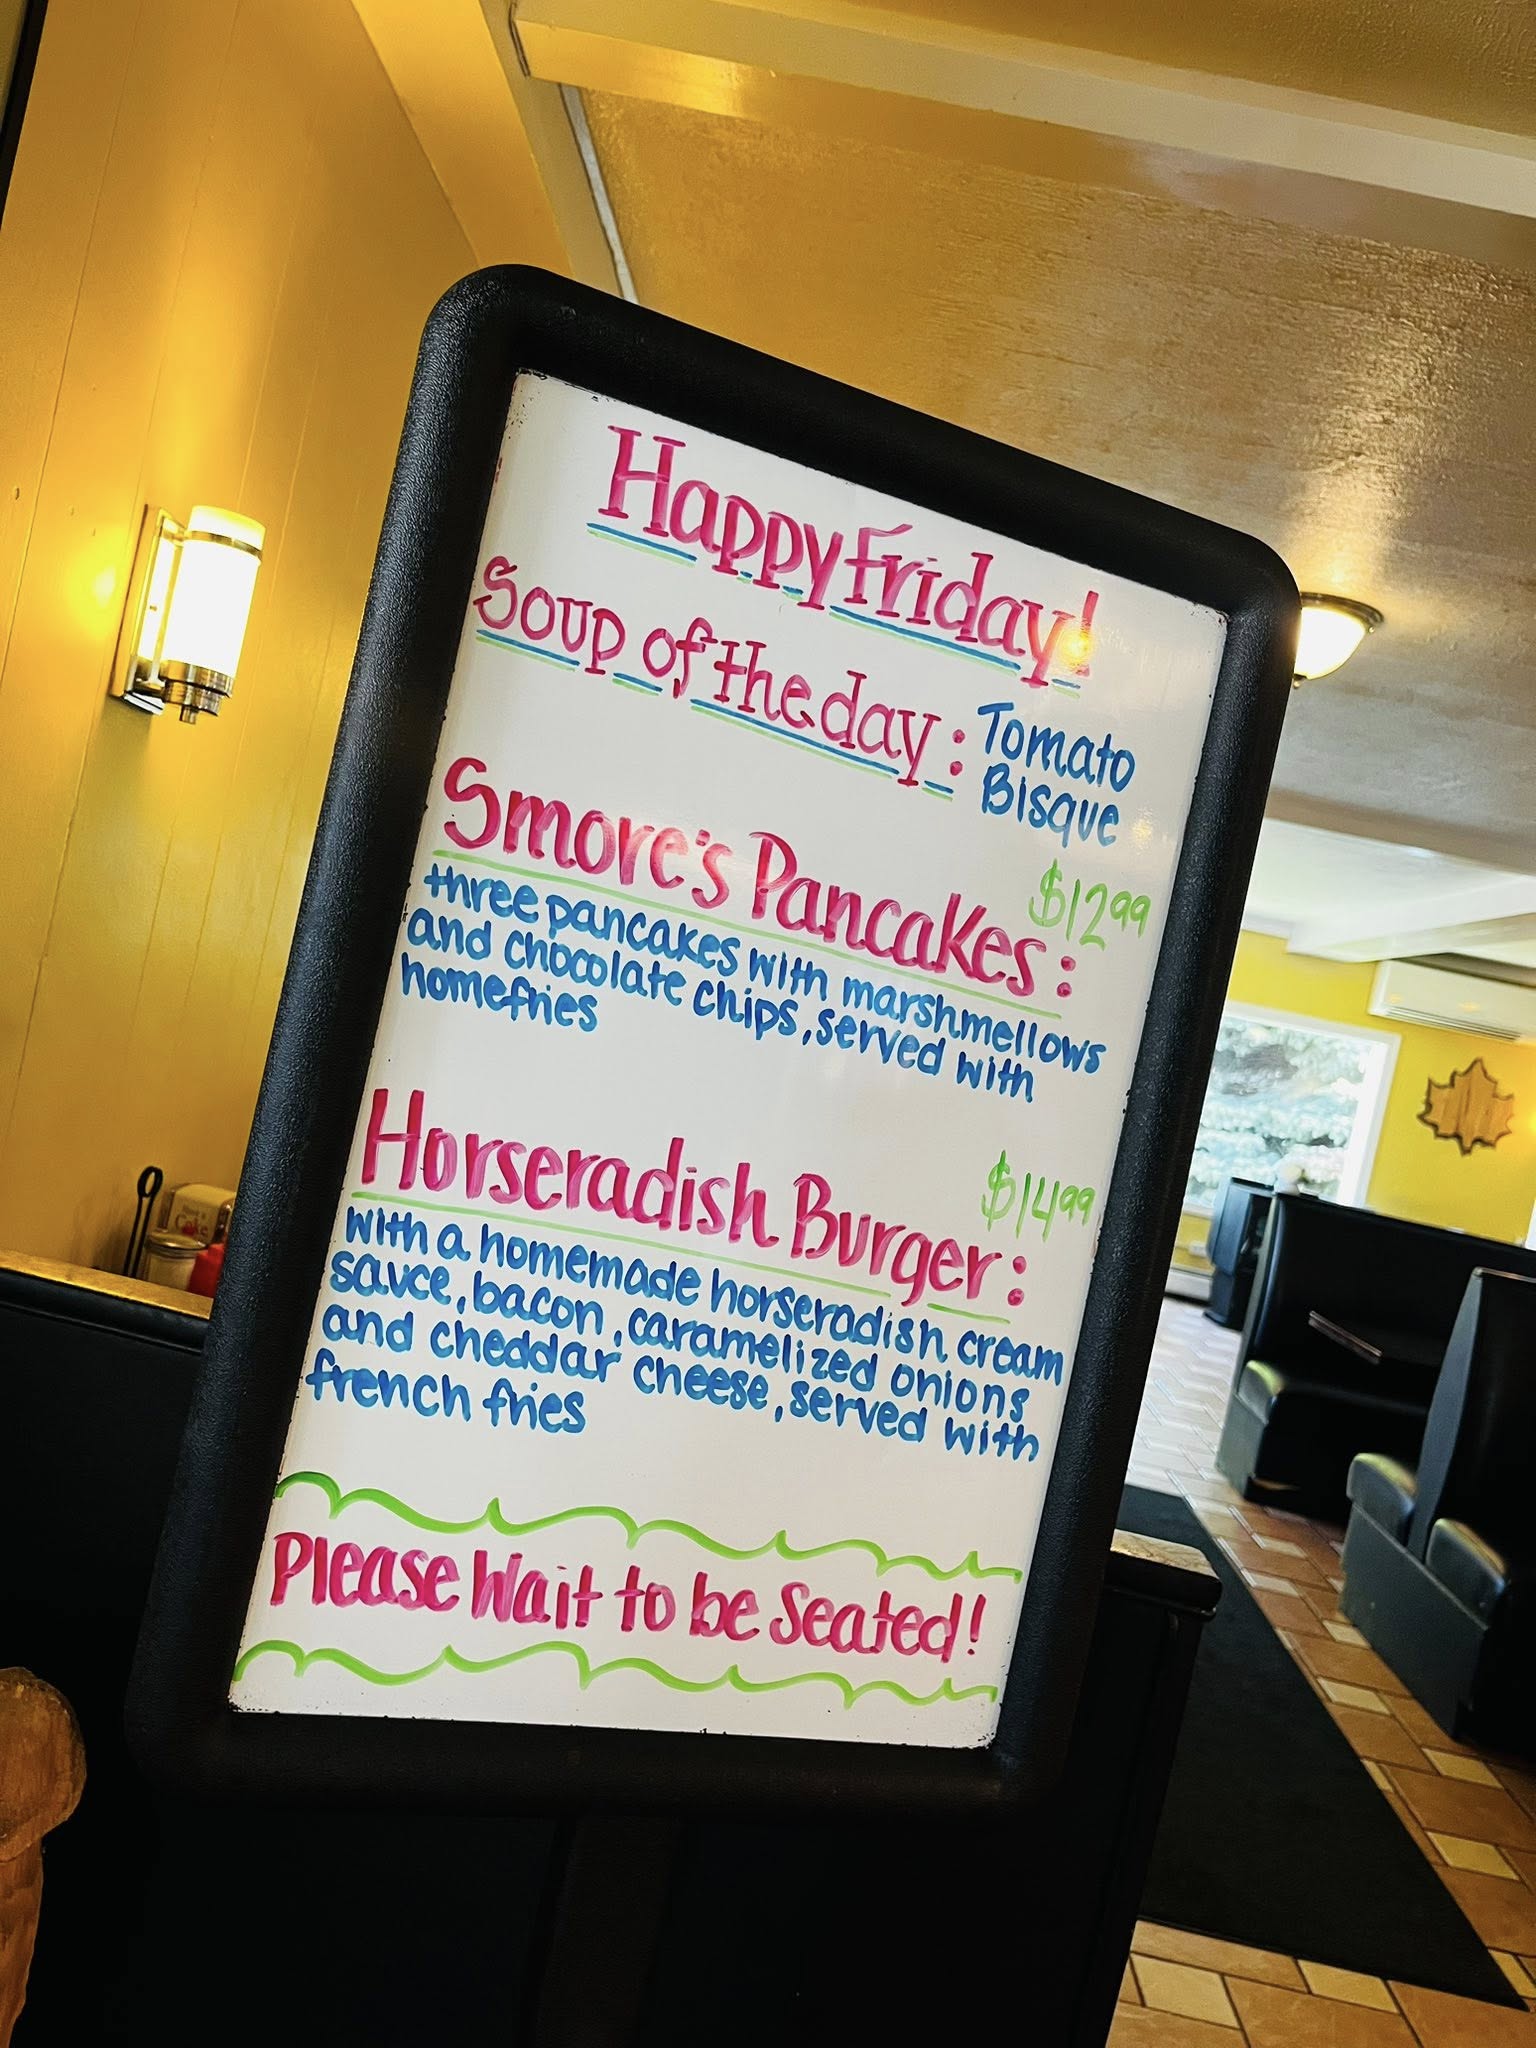 Happy Friday!
Soup of the day: Tomato
Bisque
Smore's Pancakes: $12.99
three pancakes with marshmellows
and chocolate chips, served with
homefries
Horseradish Burger: $14.99
with a homemade horseradish cream
sauce, bacon, caramelized onions
and cheddar cheese, served with
french fries
Please Wait to be Seated!